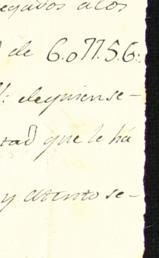 egados a los
de 6.077.5.6:
de quien se-
tad que le há
y atento se-